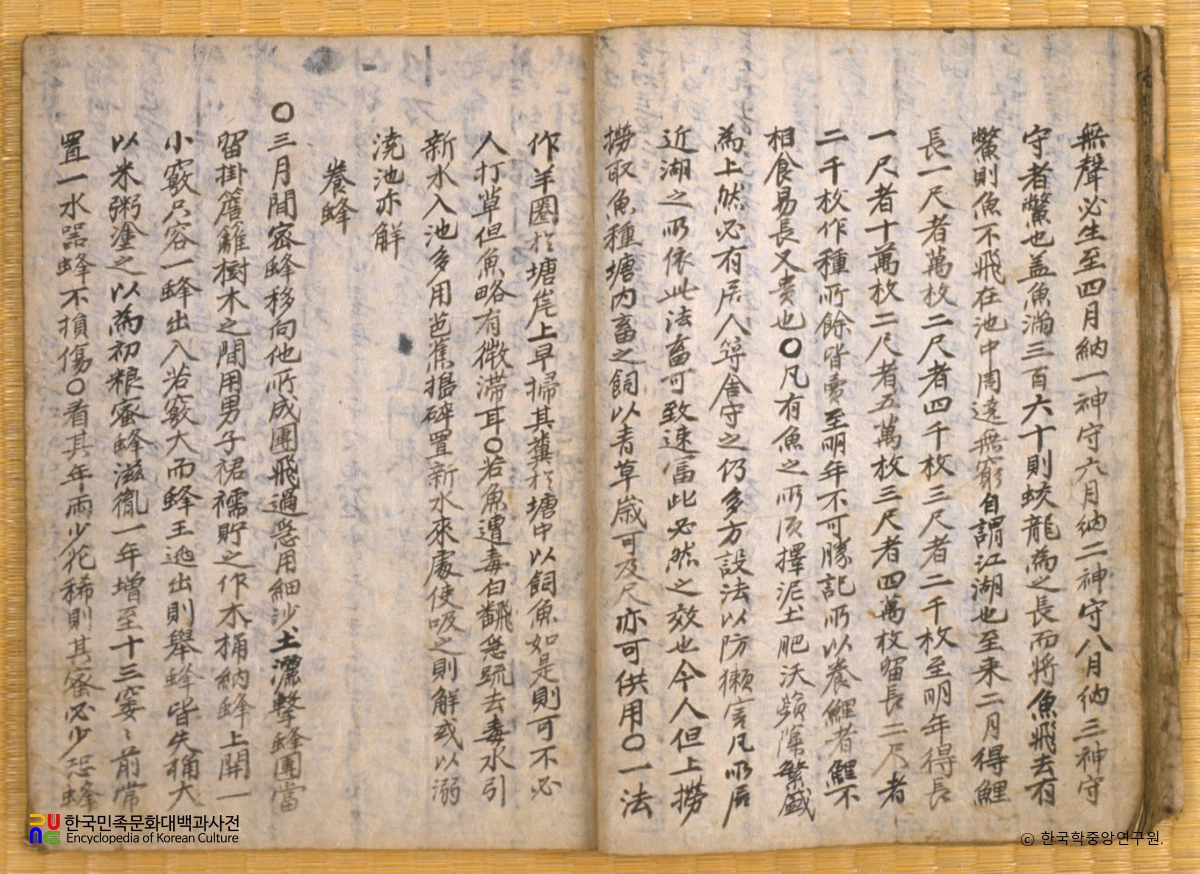 無聲必生至四月納一神守六月納二神守八月納三神守
守者鱉也盖魚滿三百六十則蛟龍為之長而將魚飛去有
鱉則魚不飛在池中周遶無窮自謂江湖也至来二月得鯉
長一尺者萬枚二尺者四千枚三尺者二千枚至明年得長
一尺者十萬枚二尺者五萬枚三尺者四萬枚留長二尺者
二千枚作種所餘皆賣至明年不可勝記所以養鯉者鯉不
相食易長又貴也〇凡有魚之所須擇泥土肥沃蘋藻繁盛
為上然必有居人等舍守之仍多方設法以防獺害凡所居
近湖之所依此法畜可致速富此必然之效也今人但上撈
撈取魚種塘内畜之飼以青草歲可及尺亦可供用〇一法
作羊圈於塘崖上早掃其糞於塘中以飼魚如是則可不必
人打草但魚略有微滯耳〇若魚遭毒白飜急䟽去毒水引
新水入池多用芭蕉搗碎置新水來處使吸之則解或以溺
澆池亦解
養蜂
〇三月間密蜂移向他所成團飛過急用細沙土灑擊蜂團當
留掛簷籬樹木之間用男子裙襦貯之作木桶納蜂上開一
小竅只容一蜂出入若竅大而蜂王逃出則舉蜂皆失桶大
以米粥塗之以為初粮蜜蜂滋胤一年增至十三窠〻前常
置一水器蜂不損傷〇看其年雨少花稀則其蜜必少恐蜂
한국민족문화대백과사전
Encyclopedia of Korean Culture
ⓒ 한국학중앙연구원.